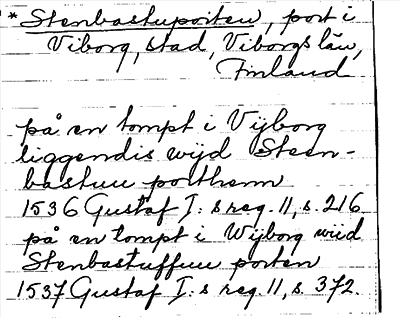 * Stenbastuporten, port i
Viborg, stad, Viborgs län,
Finland
på en tompt i Vijborg
liggendis wijd Steen-
bastuu porthenn
1536 Gustaf I:s reg. 11, s. 216
på en tompt i Wijborg wiid
Stenbastuffuu porten
1537 Gustaf I:s reg. 11, s. 372.